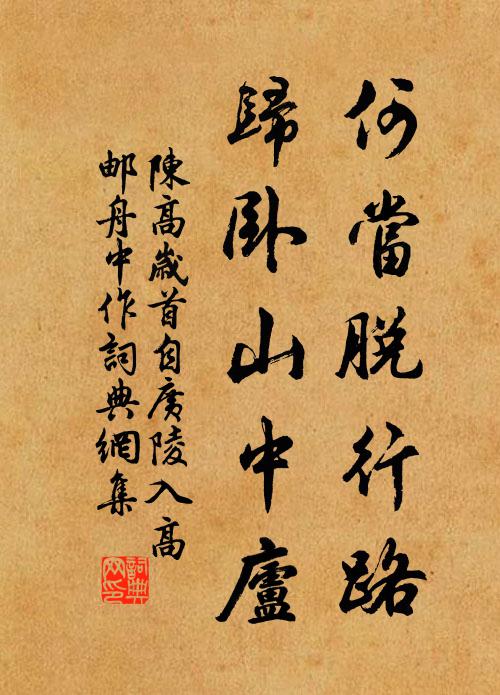 何當脫行路
歸臥山中廬
陳高歲首自廣陵入高
邮舟中作詞典網集
詞典
网印